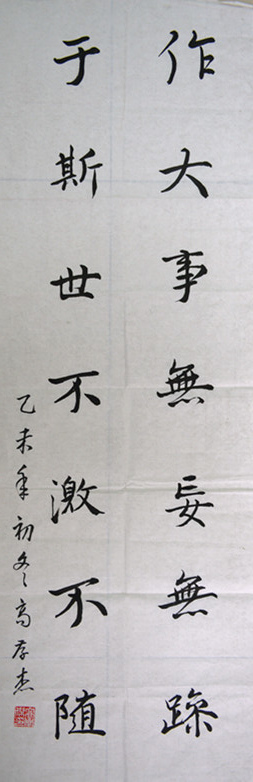 作大事無妄無躁
于斯世不激不随
乙未年初冬高存杰